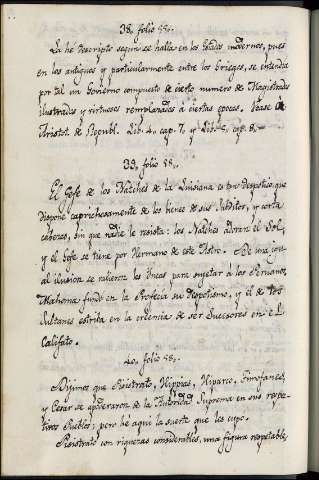 38, folio 88,,
La he descripto segun se halla en los Estados modernos, pues
en los antiguos y particularmente entre los Griegos, se entendia
por tal un Govierno compuesto de cierto numero de Magistrados
ilustrados y virtuosos remplazados a ciertas epocas. Vease á
Aristot. de Republ. Lib. 4, cap. 7, y Lib. 5, cap. 8.
39, folio 88,,
El Gefe de los Natches de la Luisiana es tan despotico, que
dispone caprichosamente de los bienes de sus subditos, y corta
cabezas, sin que nadie le resista: los Natches adoran el Sol,
y el Gefe se tiene por Hermano de este Astro. De una igu-
al ilusion se valieron los Yncas para sujetar á los Peruanos;
Mahoma fundó en la Profecia su Despotismo, y el de los
Sultanes estriba en la creencia de ser Sucesores en el
Califato.
40, folio 88,,
Digimos que Pisistrato, Hippias, Hiparco, Timofanes,
y Cesar se apoderaron de la Autoridad Suprema en sus respec-
tivos Pueblos; pero hé aqui la suerte que les cupo.
Pisistrato con riquezas considerables, una figura respetable,